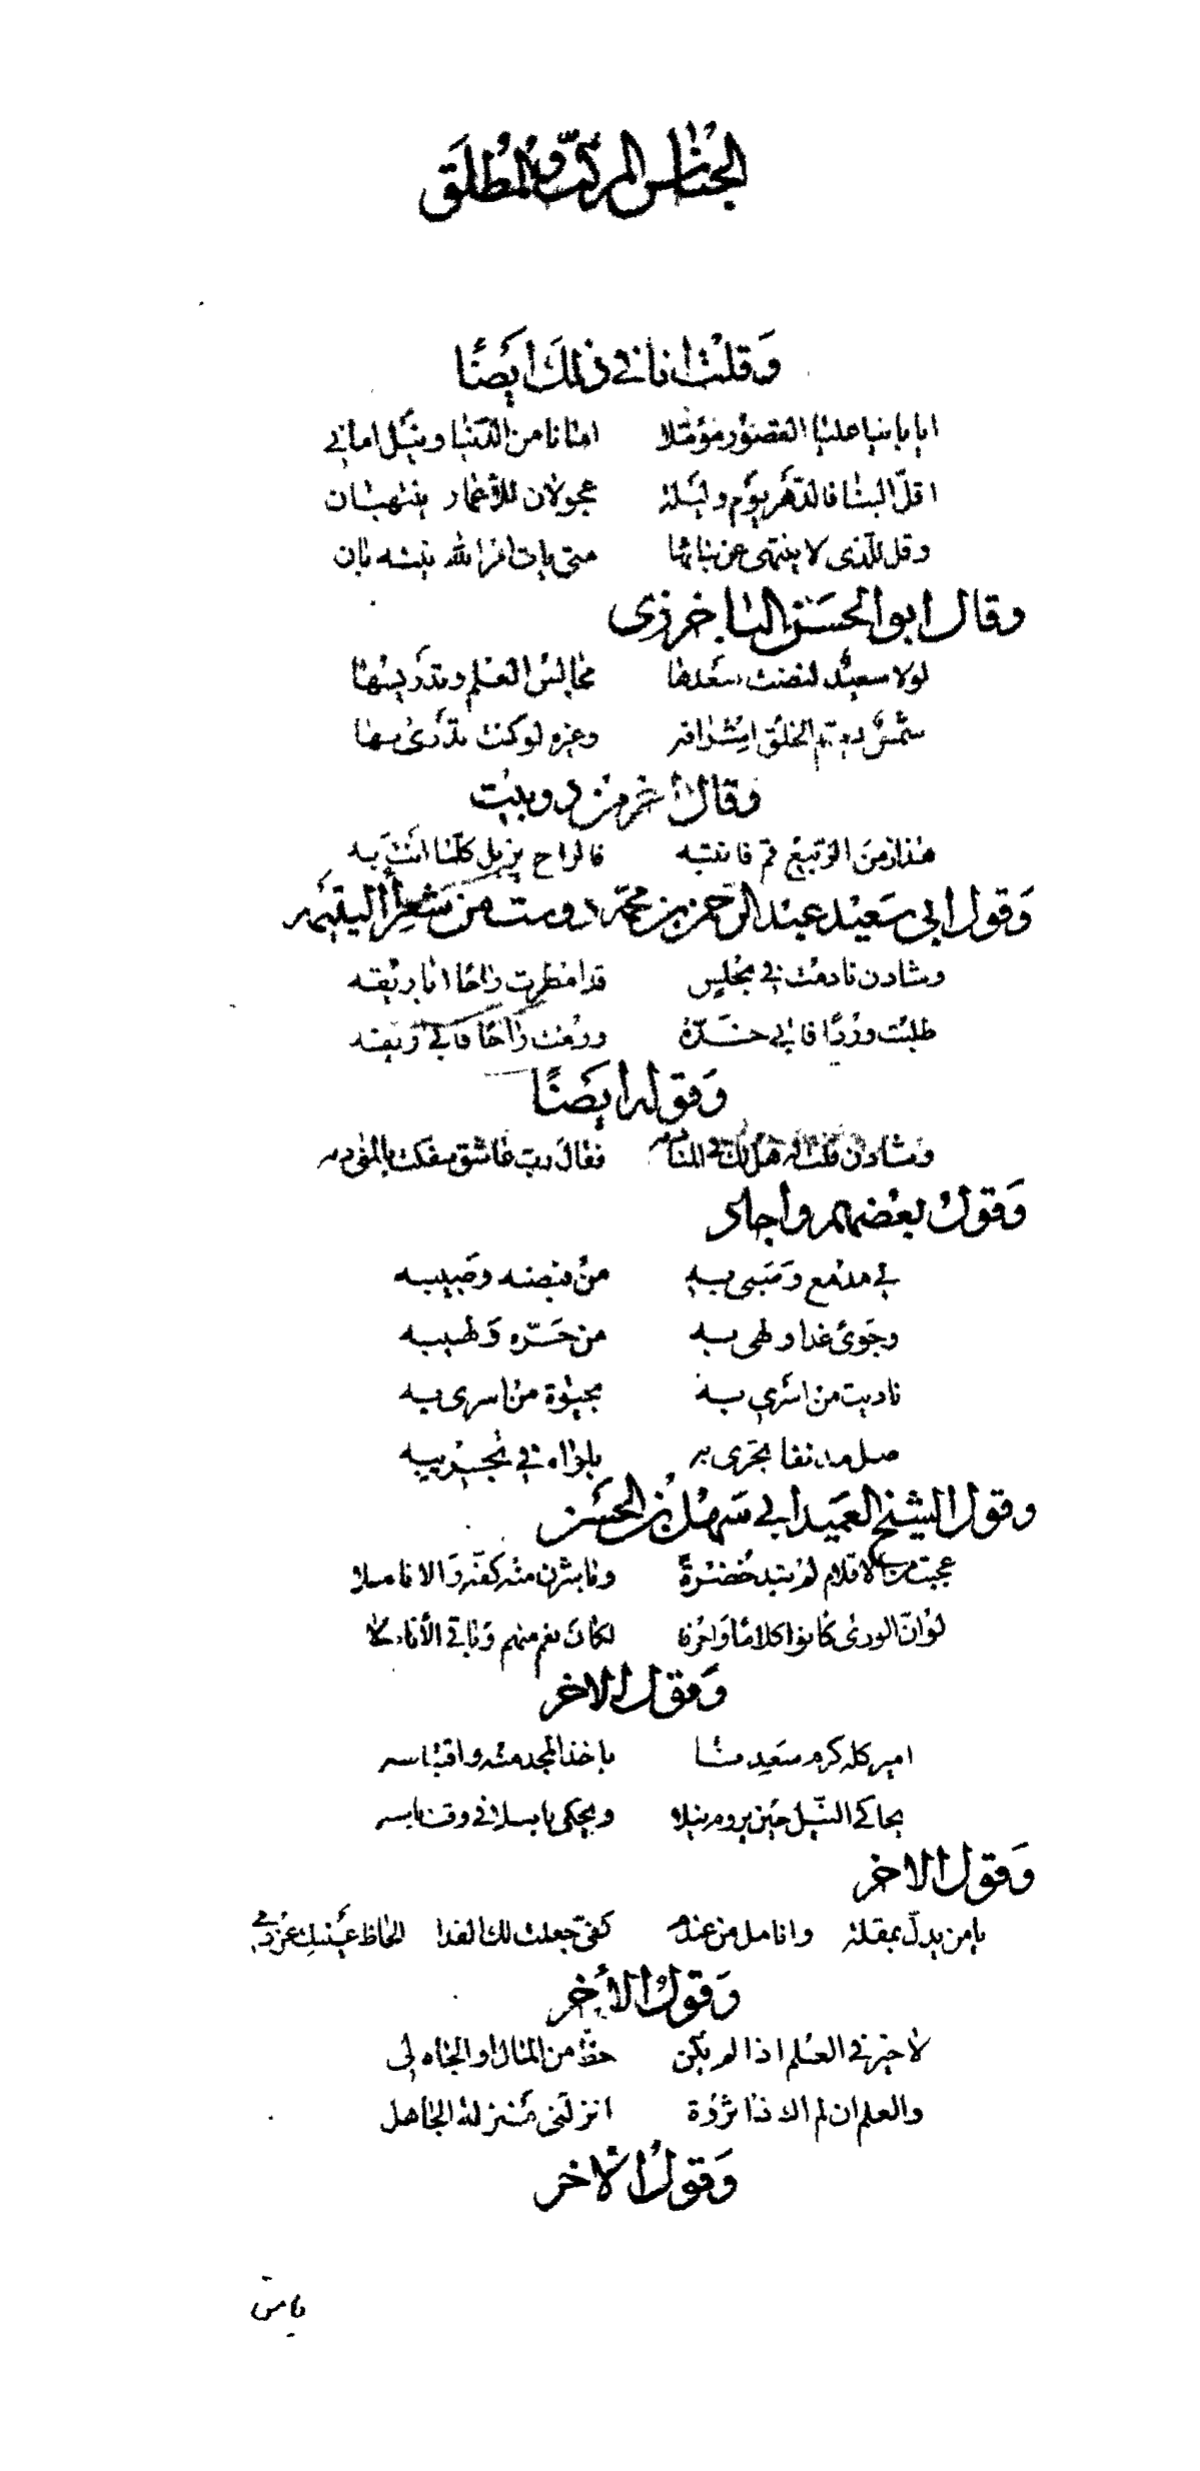 الجناس المركب والمطلق
وقلت انا في ذلك ايضا
ايا بانيا عليا القصور مؤملا امانا من الدنيا ونيل اماني
اقل البنا فالدهر يوم وليلة عجولان للأعمار ينتهبان
وقل للذي لا ينتهي عن بنائها متى يات امر الله ينته بان
وقال ابو الحسن الباخرزي
لولا سعيد لنضت سعدها مجالس العلم وتدريسها
شمس الخلق اشراقه وعزه لو كنت تدري بها
وقال اخر من دوبيت
هذا زمن الربيع قم فانتبه فالراح يزيل كلما انت به
وقول ابي سعيد عبد الرحمن بن محمد دوست من شعرا اليتيمه
وشادن نادمت في مجلس قد امطرت راحا اباريقه
طلبت وردا فابى خده ورمت راحا فابى ريقه
وقوله ايضا
وشادن قلت له هل لك في المنادمه فقال رب عاشق سفكت بالمنى دمه
وقول بعضهم واجاد
في مدمع وصبى به من فيضه وصبيبه
وجوى غدا ولهى به من حره ولهيبه
ناديت من اسرى به بحيوة من اسرى به
صل مدنفا تجرى به بلواه في تجريبه
وقول الشيخ العميد ابي سهل بن الحسن
عجبت من الاقلام لم تبد خضرة وباشرن منه كفه والاناملا
لو ان الورى كانوا كلاما واحرفا لكان نعم منهم وباقي الأنام لا
وقول الاخر
امير كله كرم سعدنا باخذ المجد منه واقتباسه
يحاكي النيل حين يروم نيلا ويحكي باسلا في وقت باسه
وقول الاخر
يا من يدل بمقلة وانامل من عندم كفي جعلت لك الفدا الحاظ عينك عن دمي
وقول الأخر
لا خير في العلم اذا لم يكن حظ من المال او الجاه لى
والعلم ان لم اك ذا ثروة انزلني منزلة الجاهل
وقول الاخر